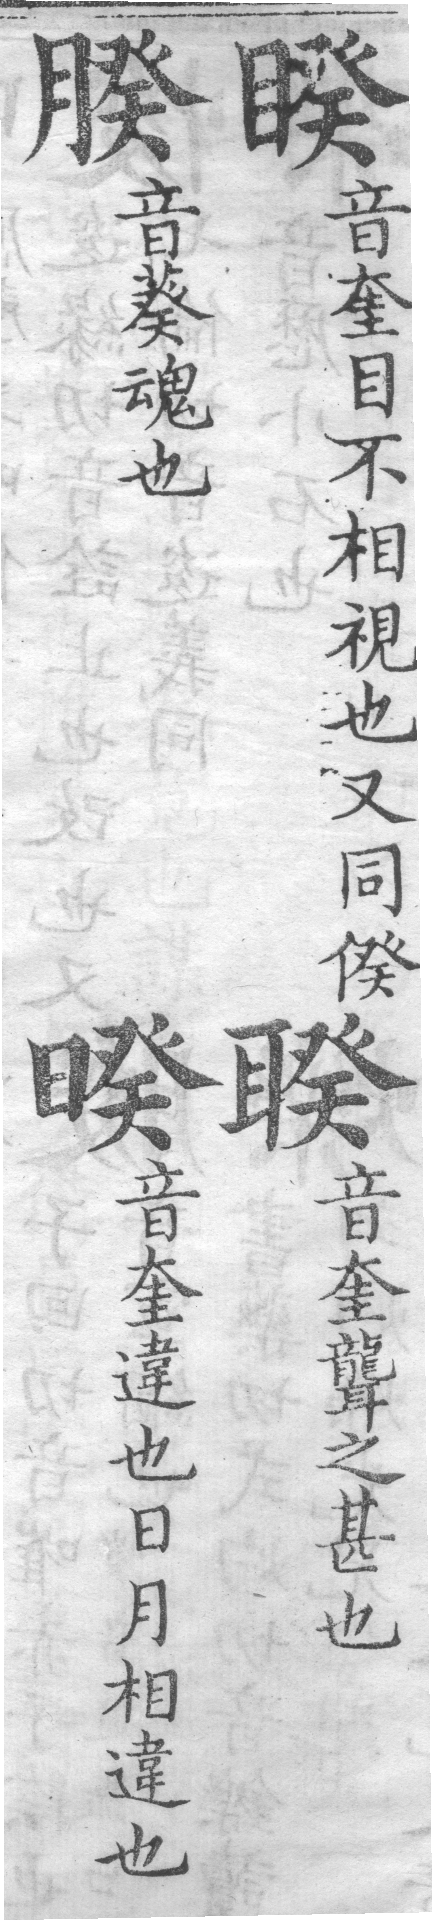 睽音奎目不相視也又同傒
聧音奎聾之甚也
脵音葵魂也
暌音奎違也日月相違也